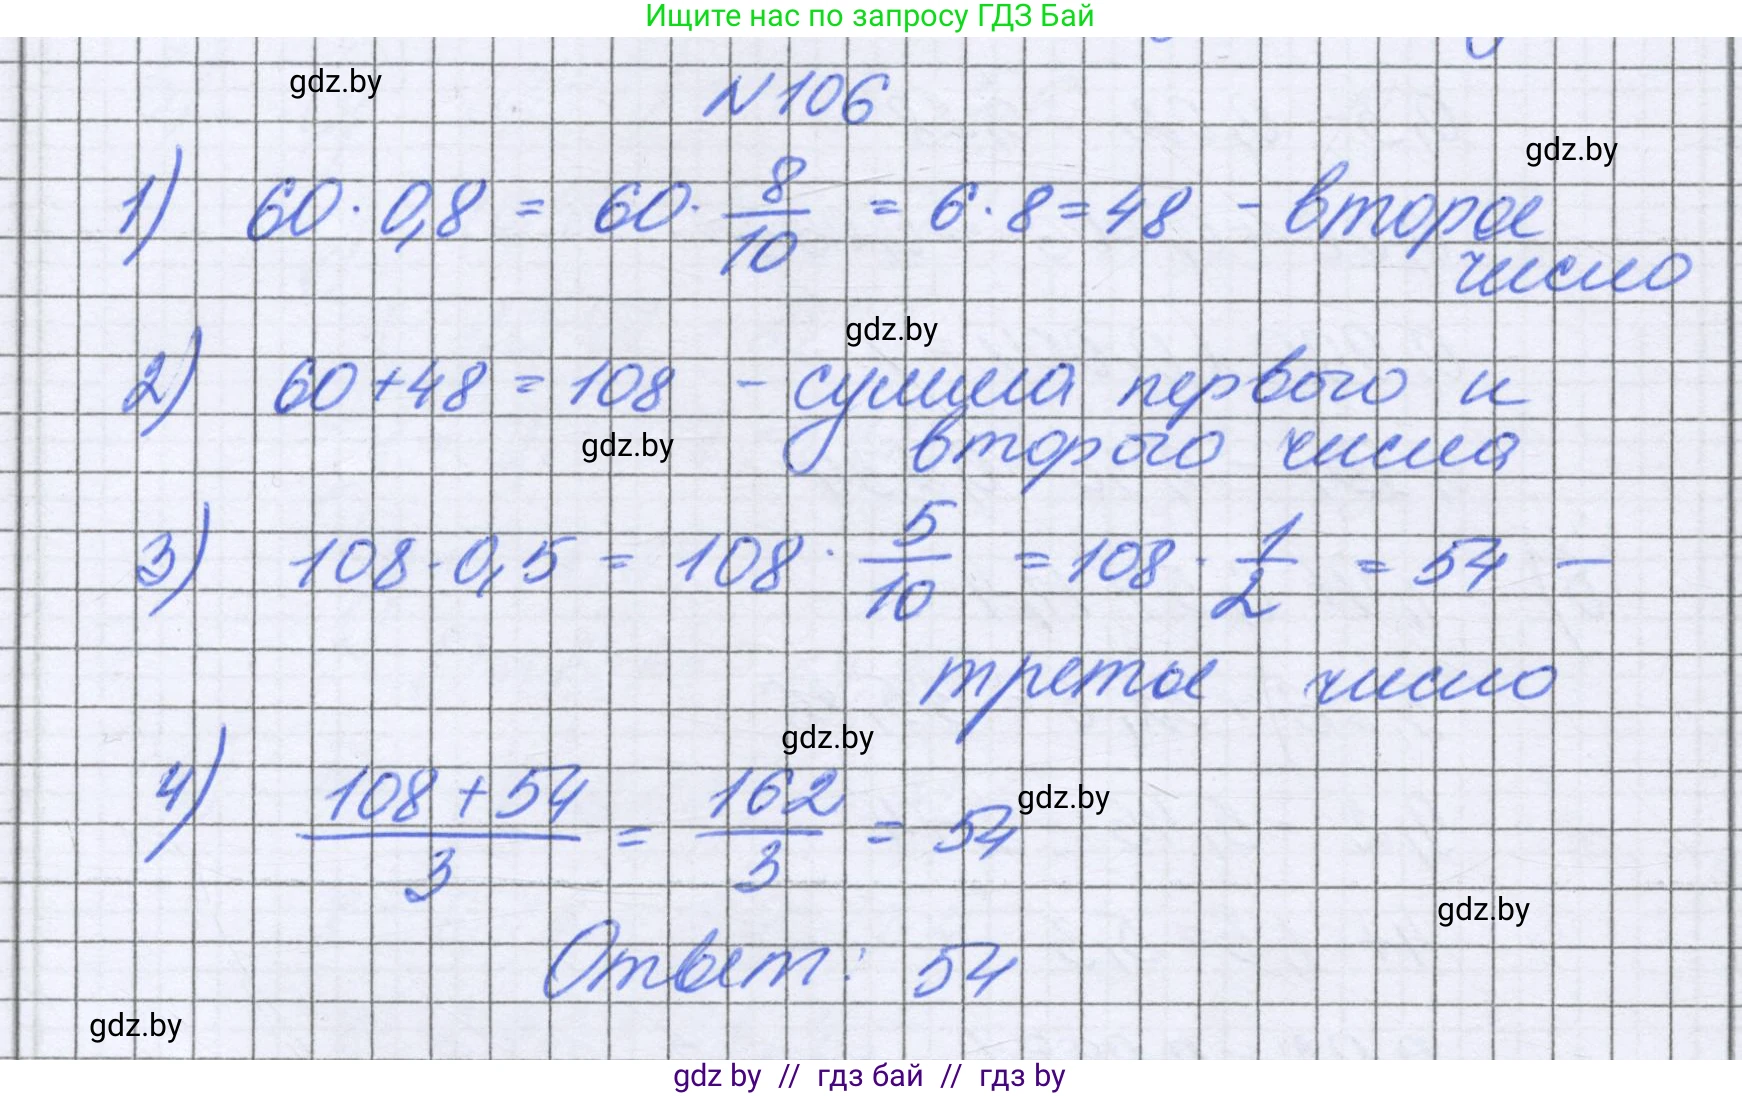 Ищите нас по запросу ГДЗ Бай
gdz.by
N 106
gdz.by
1) 60 · 0,8 = 60 · 8/10 = 6 · 8 = 48 - второе
число
gdz.by
2) 60 + 48 = 108 - сумма первого и
gdz.by
второго числа
3) 108 · 0,5 = 108 · 5/10 = 108 · 1/2 = 54 —
третье число
gdz.by
4) (108 + 54)/3 = 162/3 = 54
gdz.by
gdz.by
Ответ: 54
gdz.by
gdz by // гдз бай // гдз by